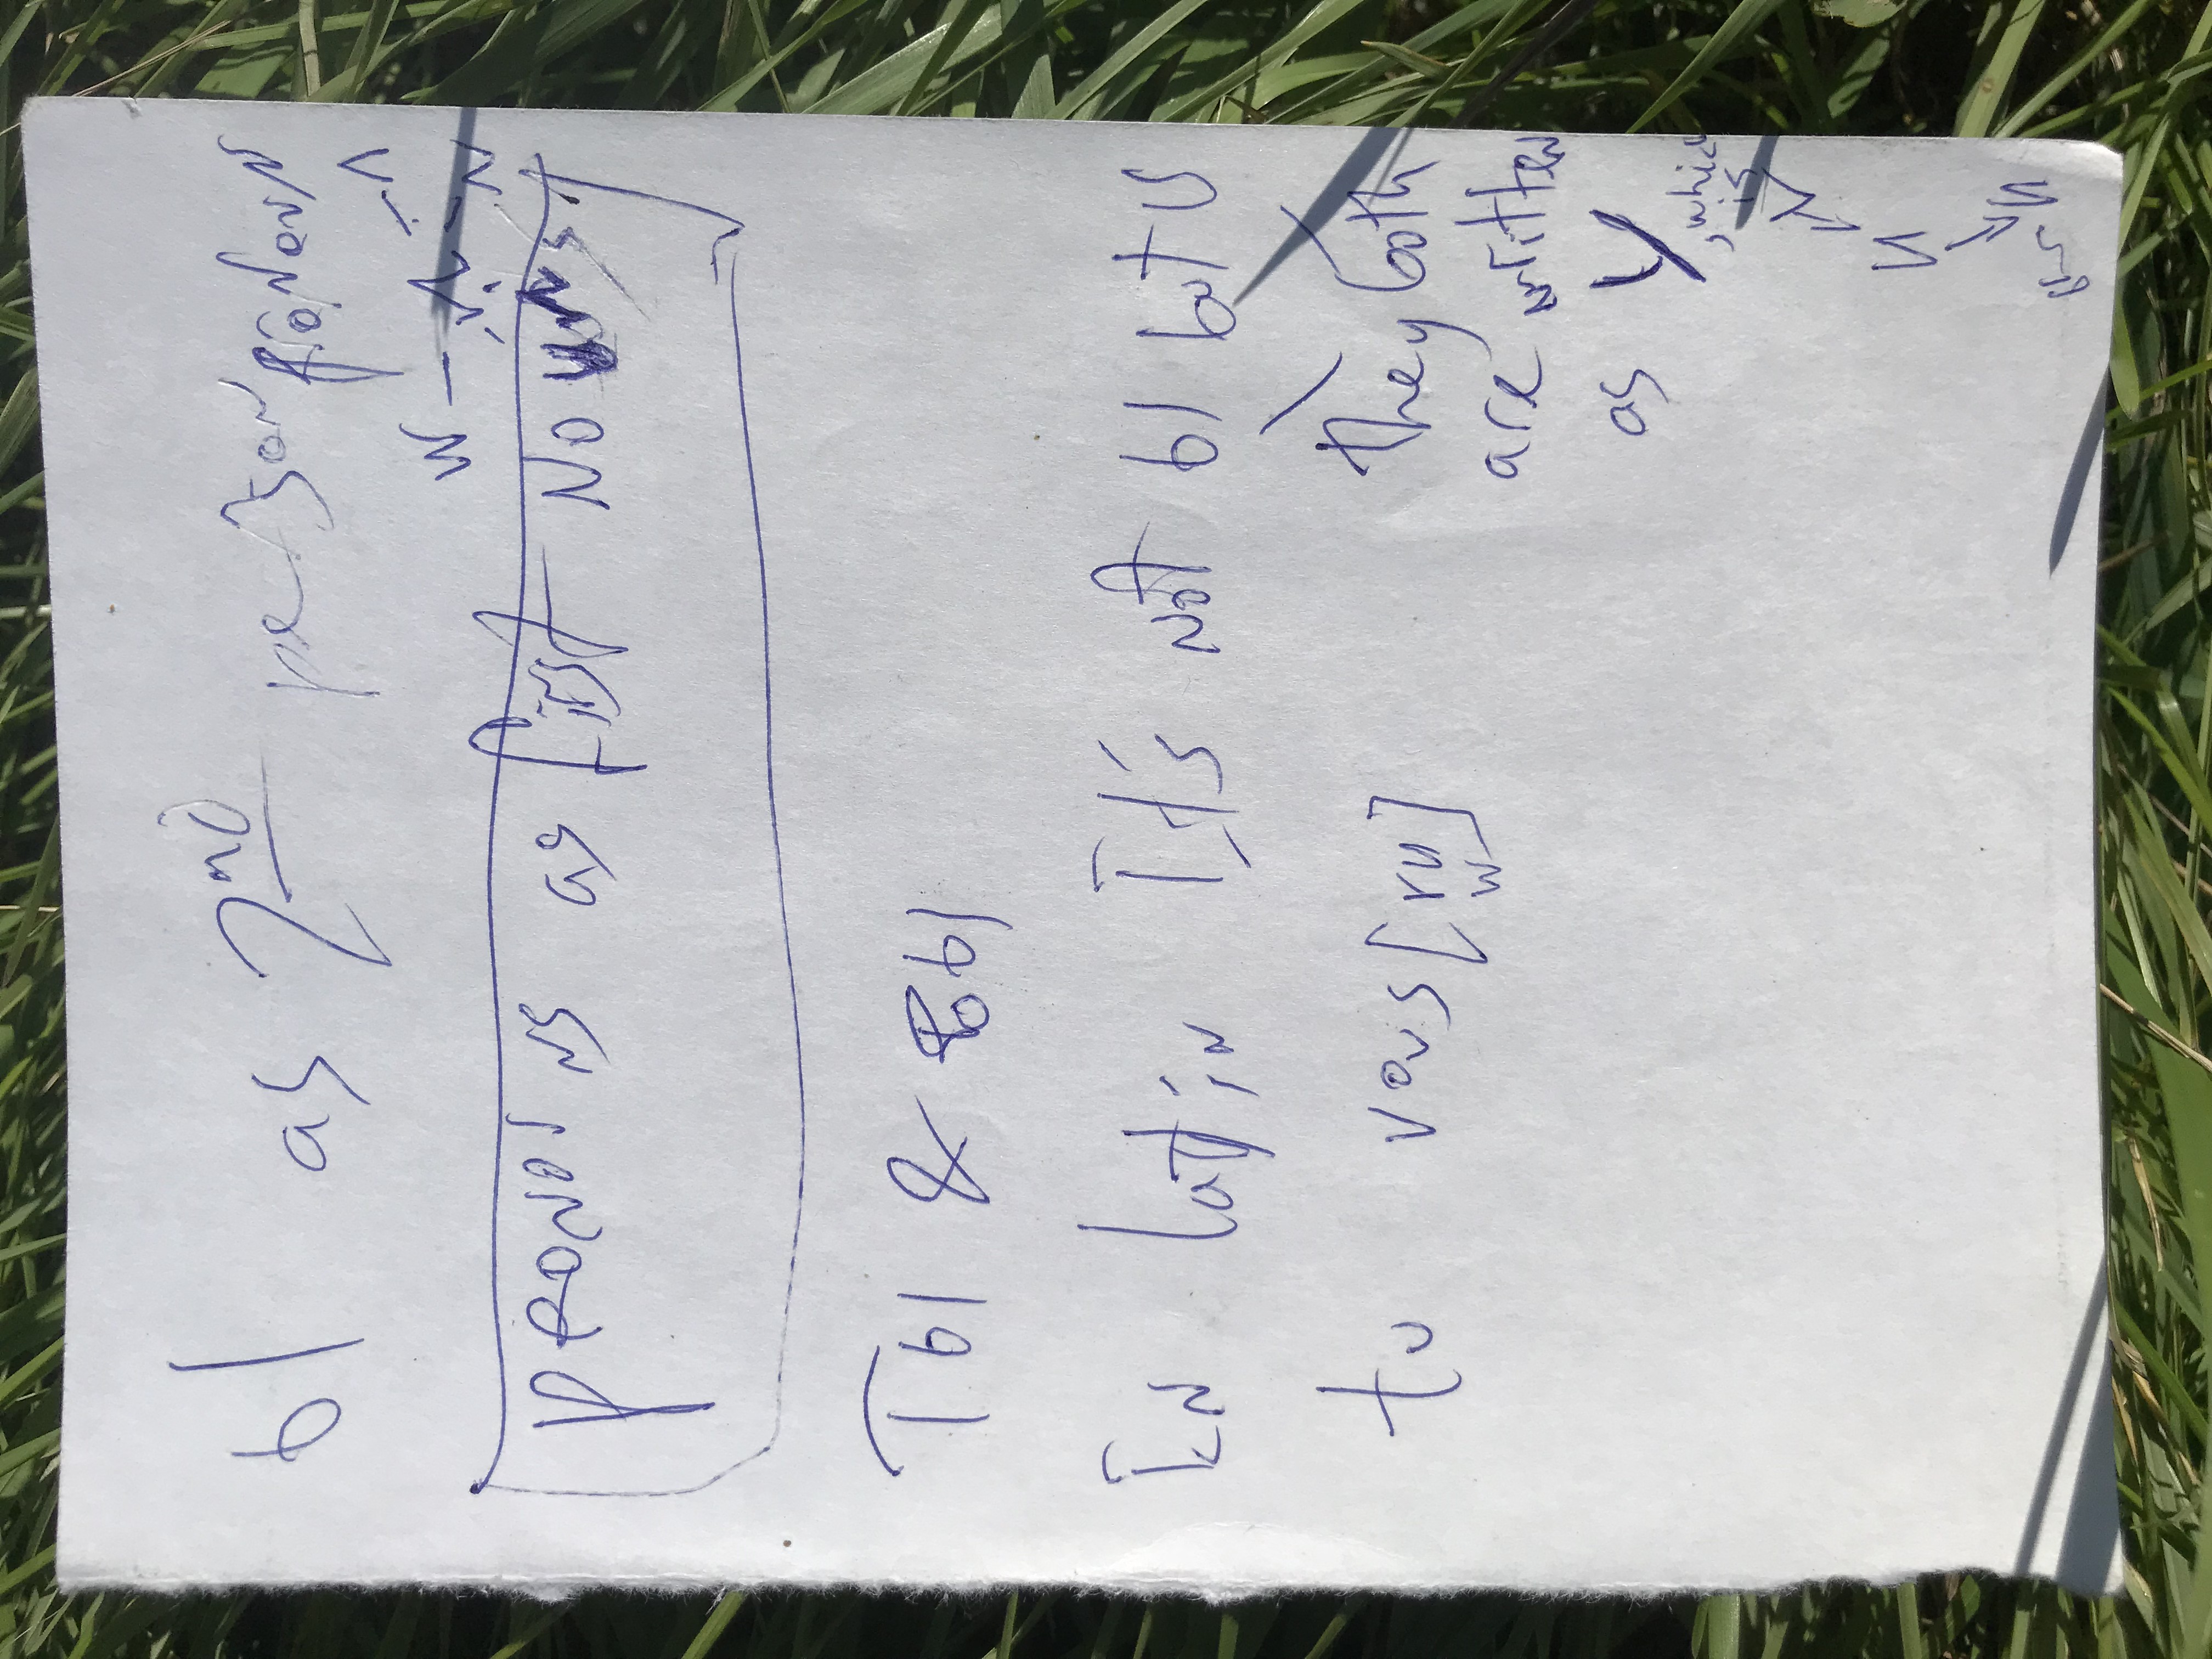 ы as 2nd person pronoun
W - n - n
N
pronouns as first nouns
Ты & Вы
In latin It's not ы but U
tu vous [vu]
w
they both
are written
as У
, which
is
И